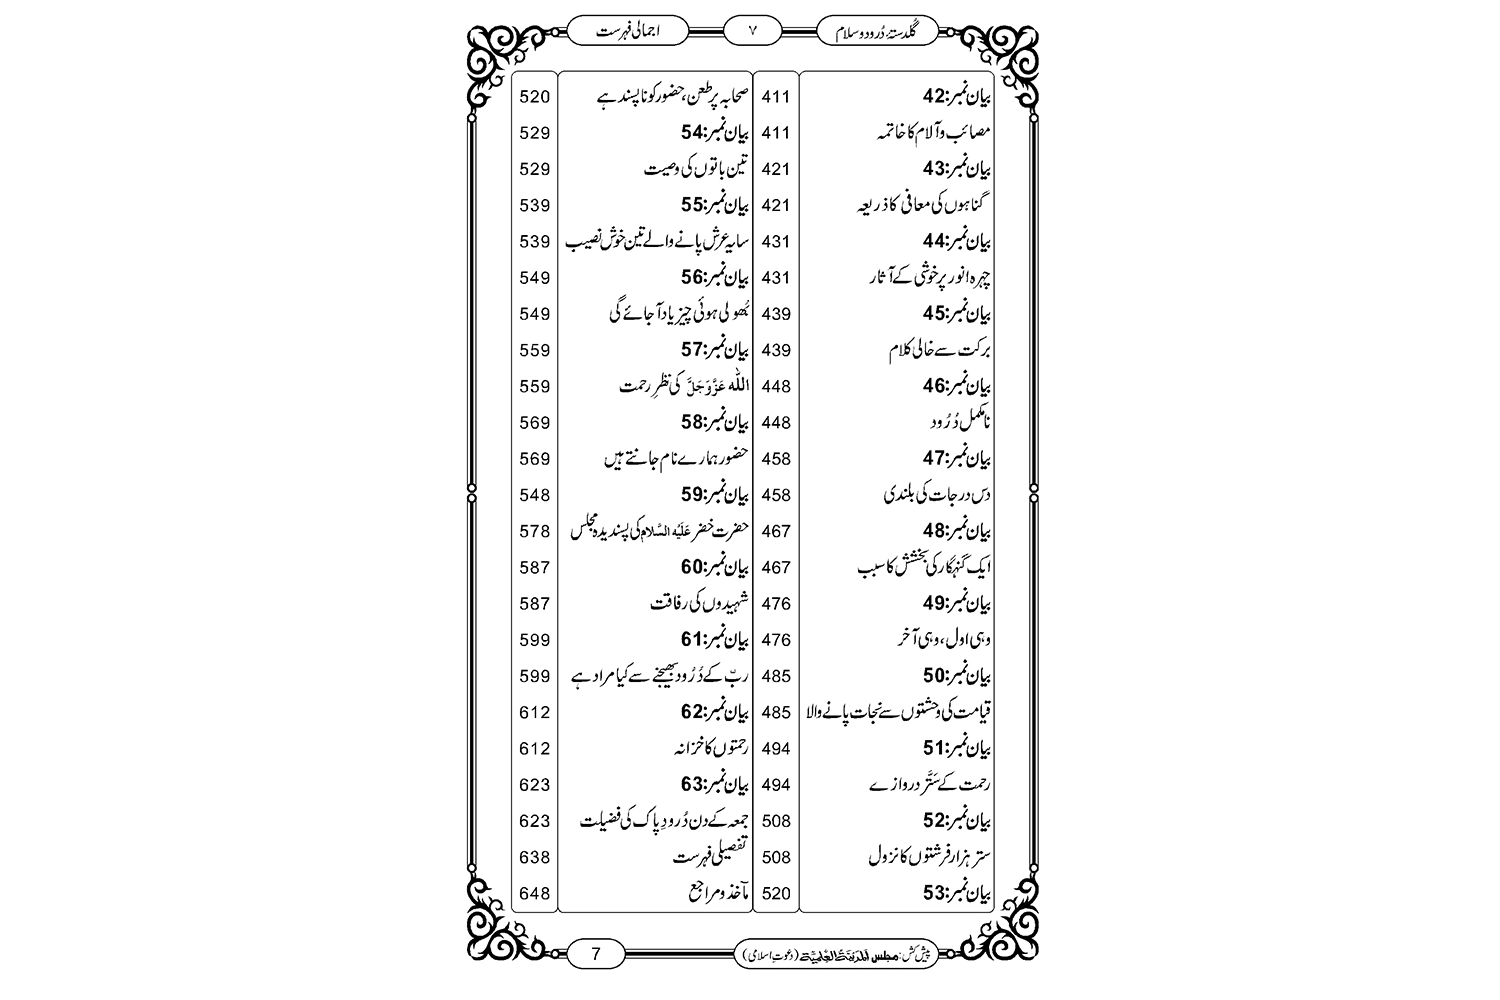 گلدستۂ دُرود و سلام
۷
اجمالی فہرست
بیان نمبر:42 411
مصائب و آلام کا خاتمہ 411
بیان نمبر:43 421
گناہوں کی معافی کا ذریعہ 421
بیان نمبر:44 431
چہرہ انور پر خوشی کے آثار 431
بیان نمبر:45 439
برکت سے خالی کلام 439
بیان نمبر:46 448
نامکمل دُرُود 448
بیان نمبر:47 458
دس درجات کی بلندی 458
بیان نمبر:48 467
ایک گنہگار کی بخشش کا سبب 467
بیان نمبر:49 476
وہی اول، وہی آخر 476
بیان نمبر:50 485
قیامت کی وحشتوں سے نجات پانے والا 485
بیان نمبر:51 494
رحمت کے سَتَّر دروازے 494
بیان نمبر:52 508
ستر ہزار فرشتوں کا نزول 508
بیان نمبر:53 520
صحابہ پر طعن، حضور کو ناپسند ہے 520
بیان نمبر:54 529
تین باتوں کی وصیت 529
بیان نمبر:55 539
سایہ عرش پانے والے تین خوش نصیب 539
بیان نمبر:56 549
بُھولی ہوئی چیز یاد آجائے گی 549
بیان نمبر:57 559
اللّٰہ عَزَّوَجَلَّ کی نظرِ رحمت 559
بیان نمبر:58 569
حضور ہمارے نام جانتے ہیں 569
بیان نمبر:59 548
حضرت خضر عَلَیْہِ السَّلَام کی پسندیدہ مجلس 578
بیان نمبر:60 587
شہیدوں کی رفاقت 587
بیان نمبر:61 599
ربّ کے دُرُود بھیجنے سے کیا مراد ہے 599
بیان نمبر:62 612
رحمتوں کا خزانہ 612
بیان نمبر:63 623
جمعہ کے دن دُرودِ پاک کی فضیلت 623
تفصیلی فہرست 638
مآخذ و مراجع 648
پیش کش: مجلس المدینۃ العلمیۃ (دعوتِ اسلامی)
7